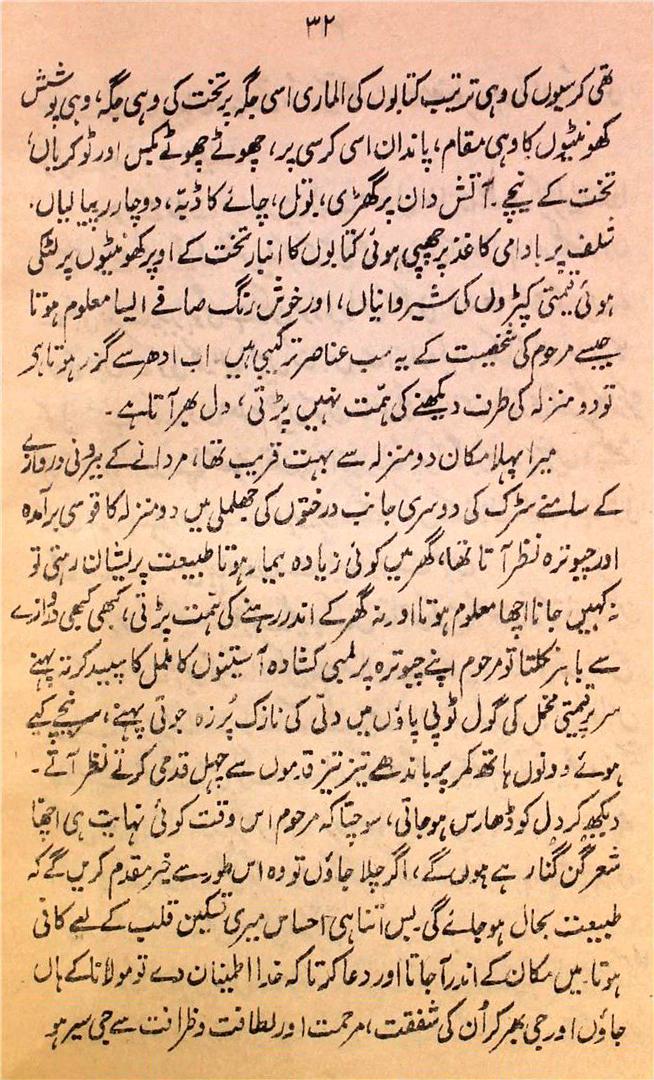 ۳۲
تھی کرسیوں کی وہی ترتیب کتابوں کی الماری اسی جگہ پر تخت کی وہی جگہ، وہی پوشش
کھونٹیوں کا وہی مقام، پاندان اسی کرسی پر، چھوٹے چھوٹے بکس اور ٹوکریاں
تخت کے نیچے۔ آتش دان پر گھڑی، بوتل، چائے کا ڈبّہ، دوچار پیالیاں۔
شلف پر بادامی کاغذ پر چھپی ہوئی کتابوں کا انبار تخت کے اوپر کھونٹیوں پر لٹکی
ہوئی قیمتی کپڑوں کی شیروانیاں، اور خوش رنگ صافے ایسا معلوم ہوتا
جیسے مرحوم کی شخصیت کے یہ سب عناصر ترکیبی ہیں۔ اب ادھر سے گزر ہوتا ہی
تو دو منزلہ کی طرف دیکھنے کی ہمّت نہیں پڑتی، دل بھر آتا ہے۔
میرا پہلا مکان دو منزلہ سے بہت قریب تھا، مردانے کے بیرونی دروازے
کے سامنے سڑک کی دوسری جانب درختوں کی جھلملی میں دو منزلہ کا قوسی برآمدہ
اور چبوترہ نظر آتا تھا، گھر میں کوئی زیادہ بیمار ہوتا طبیعت پریشان رہتی تو
نہ کہیں جانا اچھا معلوم ہوتا اور نہ گھر کے اندر رہنے کی ہمّت پڑتی، کبھی کبھی دروازے
سے باہر نکلتا تو مرحوم اپنے چبوترہ پر لمبی کشادہ آستینوں کا ململ کا سپید کرتہ پہنے
سر پر قیمتی مخمل کی گول ٹوپی پاؤں میں دلّی کی نازک پُرزہ جوتی پہنے، سر نیچے کیے
ہوئے دونوں ہاتھ کمر پر باندھے تیز تیز قدموں سے چہل قدمی کرتے نظر آتے۔
دیکھ کر دل کو ڈھارس ہو جاتی، سوچتا کہ مرحوم اس وقت کوئی نہایت ہی اچھا
شعر گُن گُنا رہے ہوں گے، اگر چلا جاؤں تو وہ اس طور سے خیر مقدم کریں گے کہ
طبیعت بحال ہو جائے گی۔ بس اتنا ہی احساس میری تسکین قلب کے لیے کافی
ہوتا۔ میں مکان کے اندر آجاتا اور دعا کرتا کہ خدا اطمینان دے تو مولانا کے ہاں
جاؤں اور جی بھر کر اُن کی شفقت، مرحمت اور لطافت و ظرافت سے جی سیر ہو